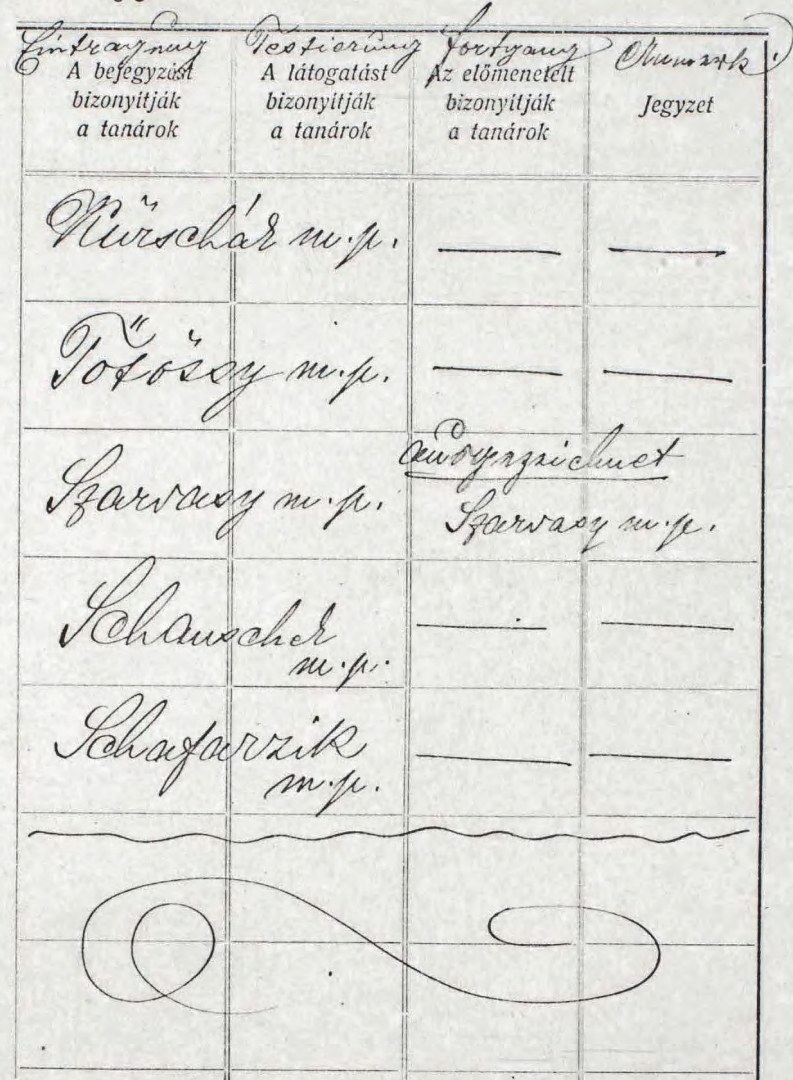 Eintragung Testierung Fortgang Anmerk.
A bejegyzést bizonyítják a tanárok
A látogatást bizonyítják a tanárok
Az előmenetelt bizonyítják a tanárok
Jegyzet
Kürschák m.p. — —
Tőtőssy m.p. — —
Szarvasy m.p. ausgezeichnet
Szarvasy m.p.
Schauschek — —
m.p.
Schafarzik — —
m.p.